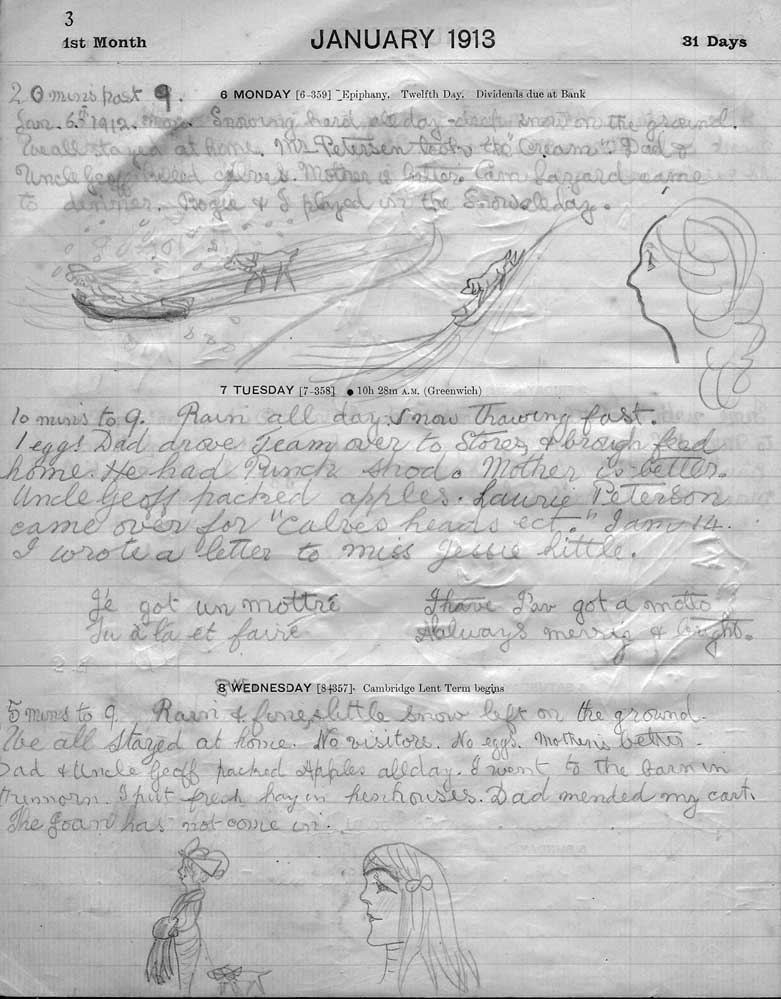 3
1st Month JANUARY 1913 31 Days
20 min's past 9. 6 MONDAY [6-359] Epiphany. Twelfth Day. Dividends due at Bank
Jan. 6th 1912. Snowing hard all day. inch snow on the ground.
We all stayed at home. Mr Petersen took the "Cream". Dad &
Uncle Geoff killed calves. Mother is better. Cam Lazard came
to dinner. & I played in the Snow all day.
7 TUESDAY [7-358] ● 10h 28m A.M. (Greenwich)
10 mins to 9. Rain all day. Snow Thawing fast.
1 egg! Dad drove Team over to Stores, & brough feed
home. He had Punch shod. Mother is better.
Uncle Geoff packed apples. Laurie Peterson
came over for "calves heads ect." I am 14.
I wrote a letter to miss Jessie Little.
Je got un mottre I have I'av got a motto
Tu a la et faire Aalways merrig & bright.
8 WEDNESDAY [8-357]. Cambridge Lent Term begins
5 mins to 9. Rain & fine, little snow left on the ground.
We all stayed at home. No visitors. No eggs. Mother is better.
Dad & Uncle Geoff packed Apples all day. I went to the barn in
morn. I put fresh hay in henhouses. Dad mended my cart.
The Joan has not come in.